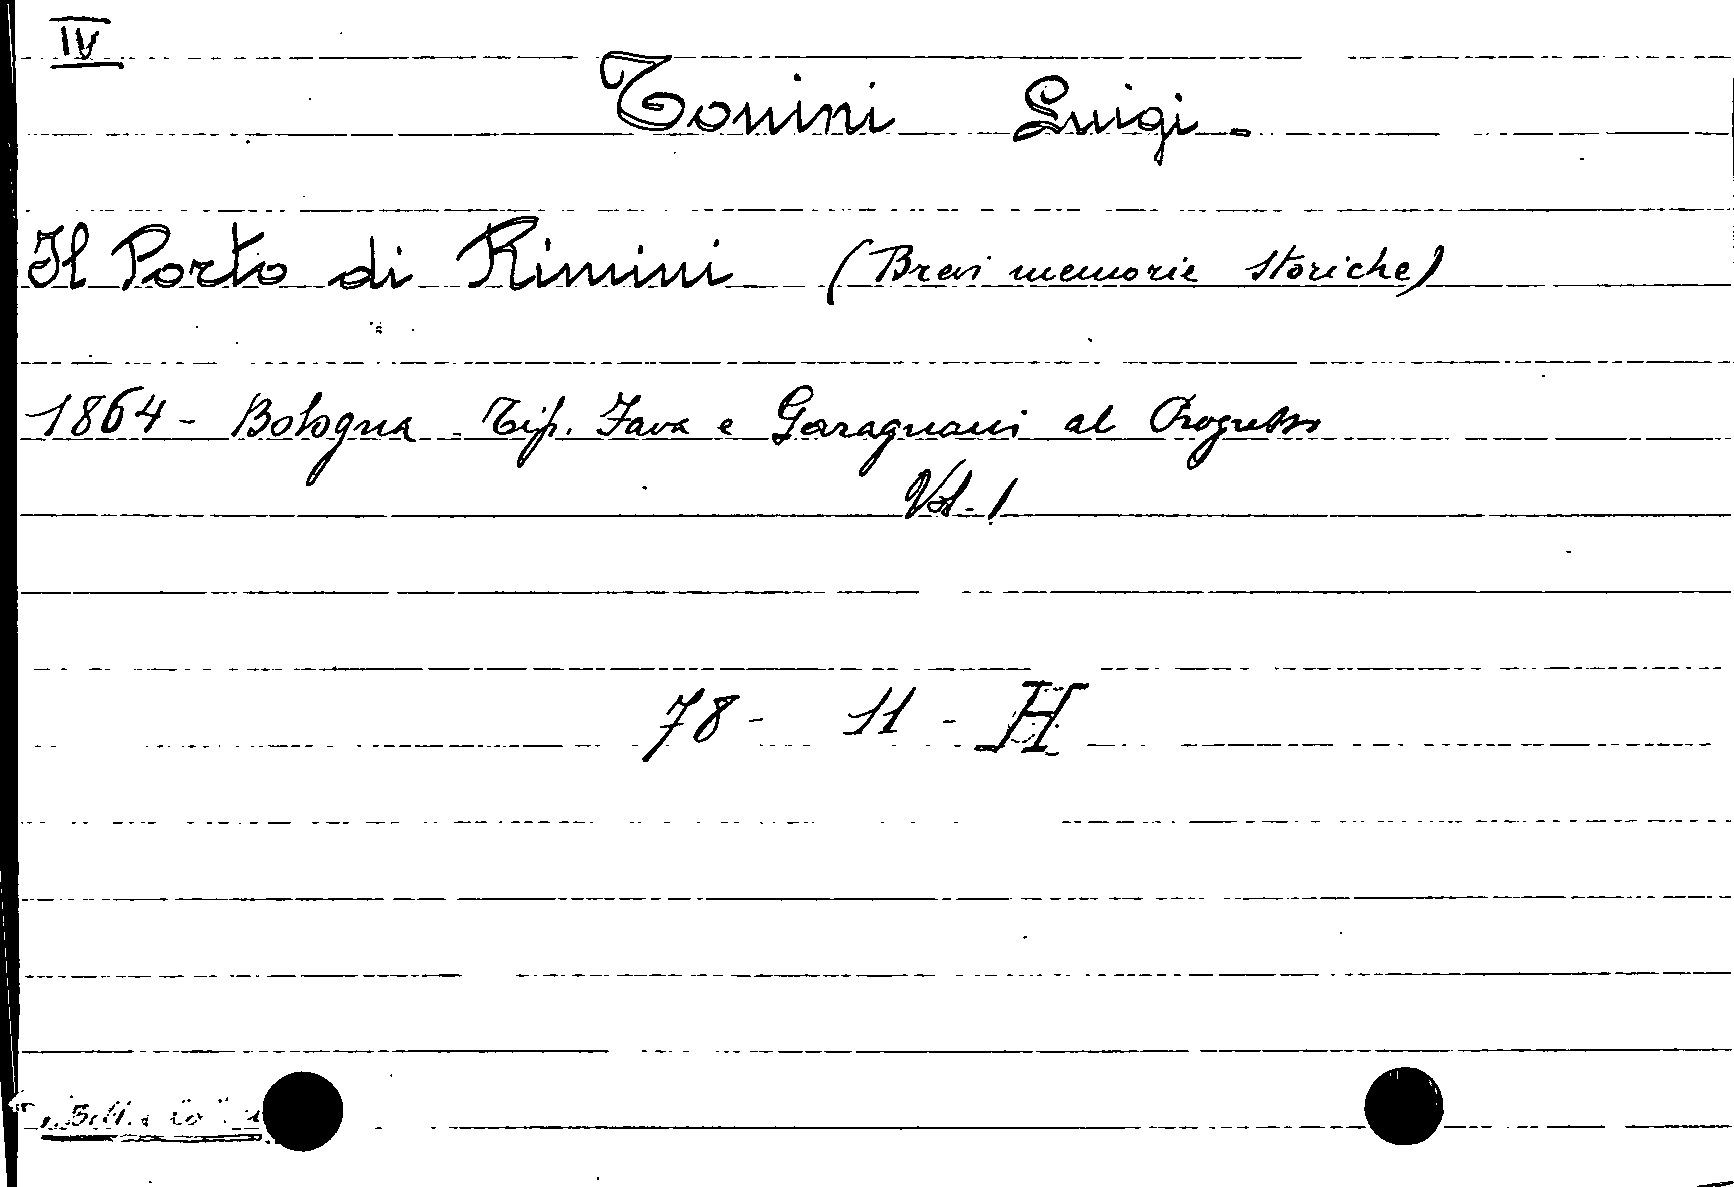 IV
Tonini Luigi -
Il Porto di Rimini (Brevi memorie storiche)
1864 - Bologna - Tip. Fava e Garagnani al Progresso
Vol. 1
78 - 11 - H